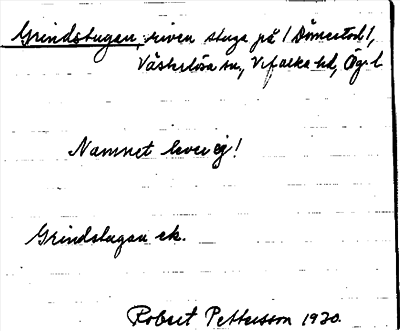 Grindstugan, riven stuga på 1 Dömestad 1,
Västerlösa sn, Vifolka hd, Ög. l
Namnet lever ej!
Grindstugan ek.
Robert Pettersson 1930.